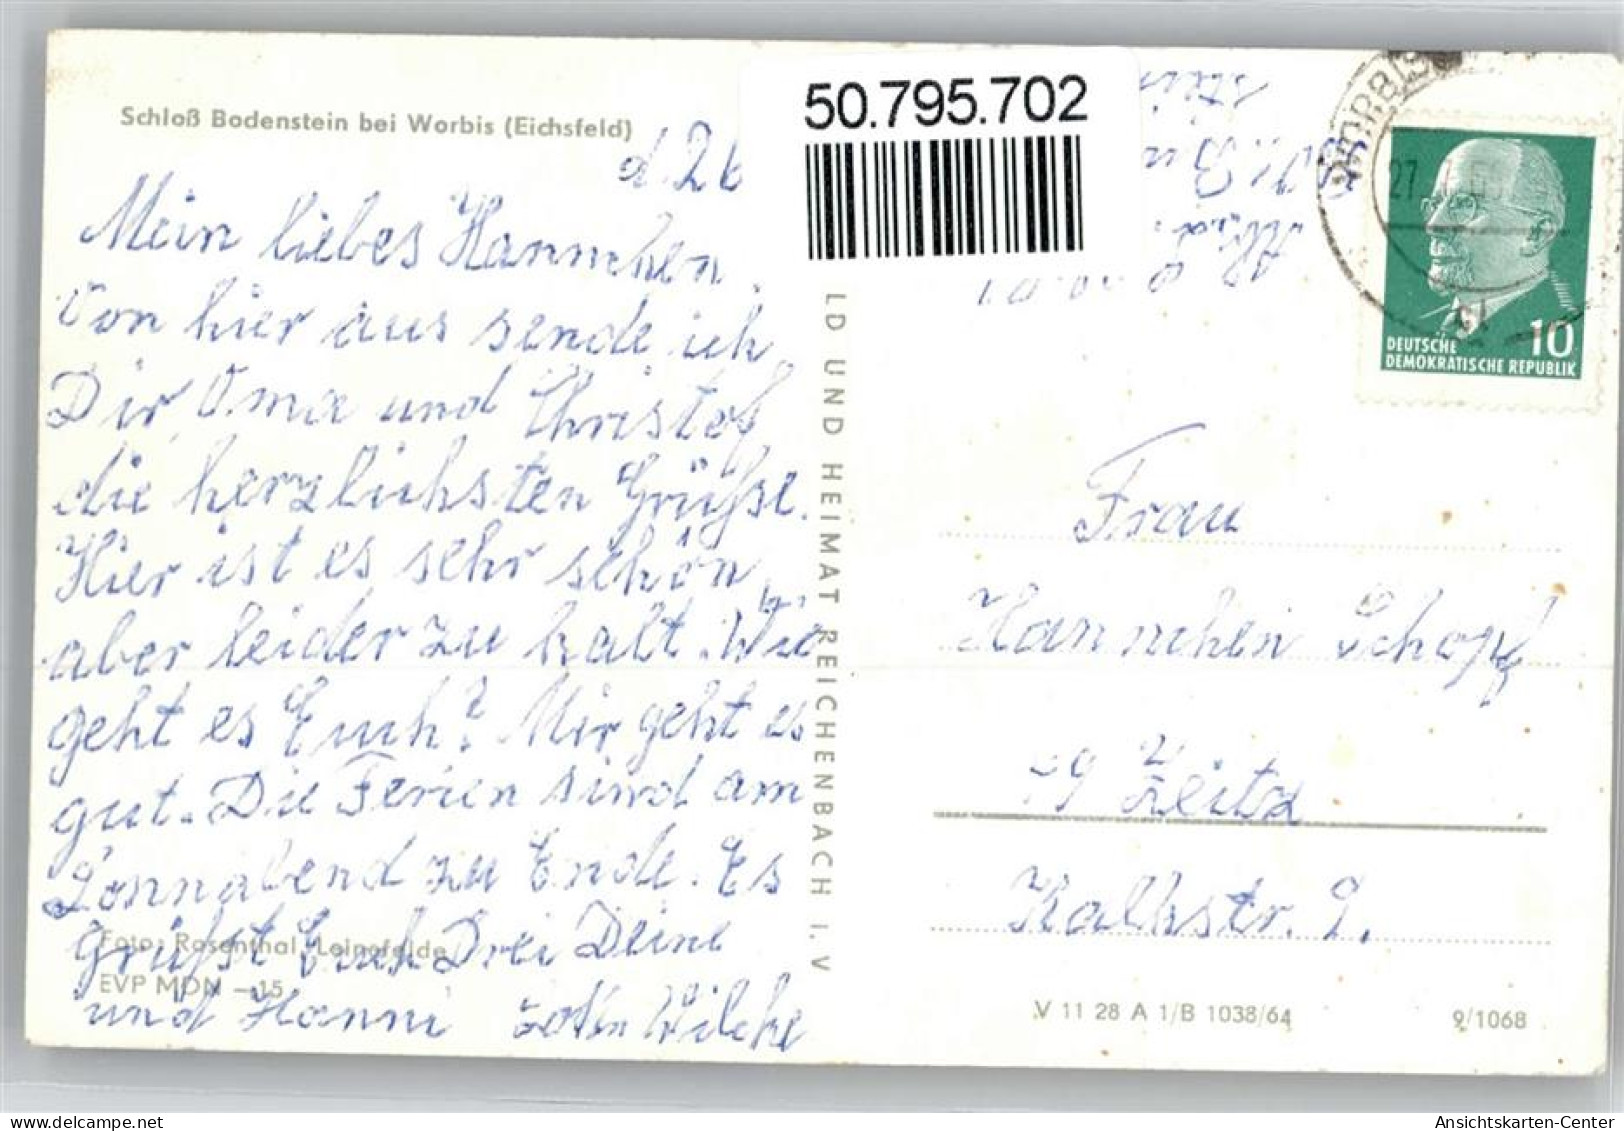 Schloß Bodenstein bei Worbis (Eichsfeld)
50.795.702
d. 26
Mein liebes Hannchen.
Von hier aus sende ich
Dir, Oma und Christof
die herzlichsten Grüße.
Hier ist es sehr schön,
aber leider zu kalt. Wie
geht es Euch? Mir geht es
gut. Die Ferien sind am
Sonnabend zu Ende. Es
grüßt Euch Drei Deine
und Hanni Wilcke
Foto: Rosenthal, Leinefelde
EVP MDN –15
LD UND HEIMAT REICHENBACH I. V
WORBIS
27.
DEUTSCHE
DEMOKRATISCHE REPUBLIK
10
Frau
Hannchen Schopf
49 Zeitz
Kalkstr. 9.
V 11 28 A 1/B 1038/64
9/1068
Ansichtskarten-Center